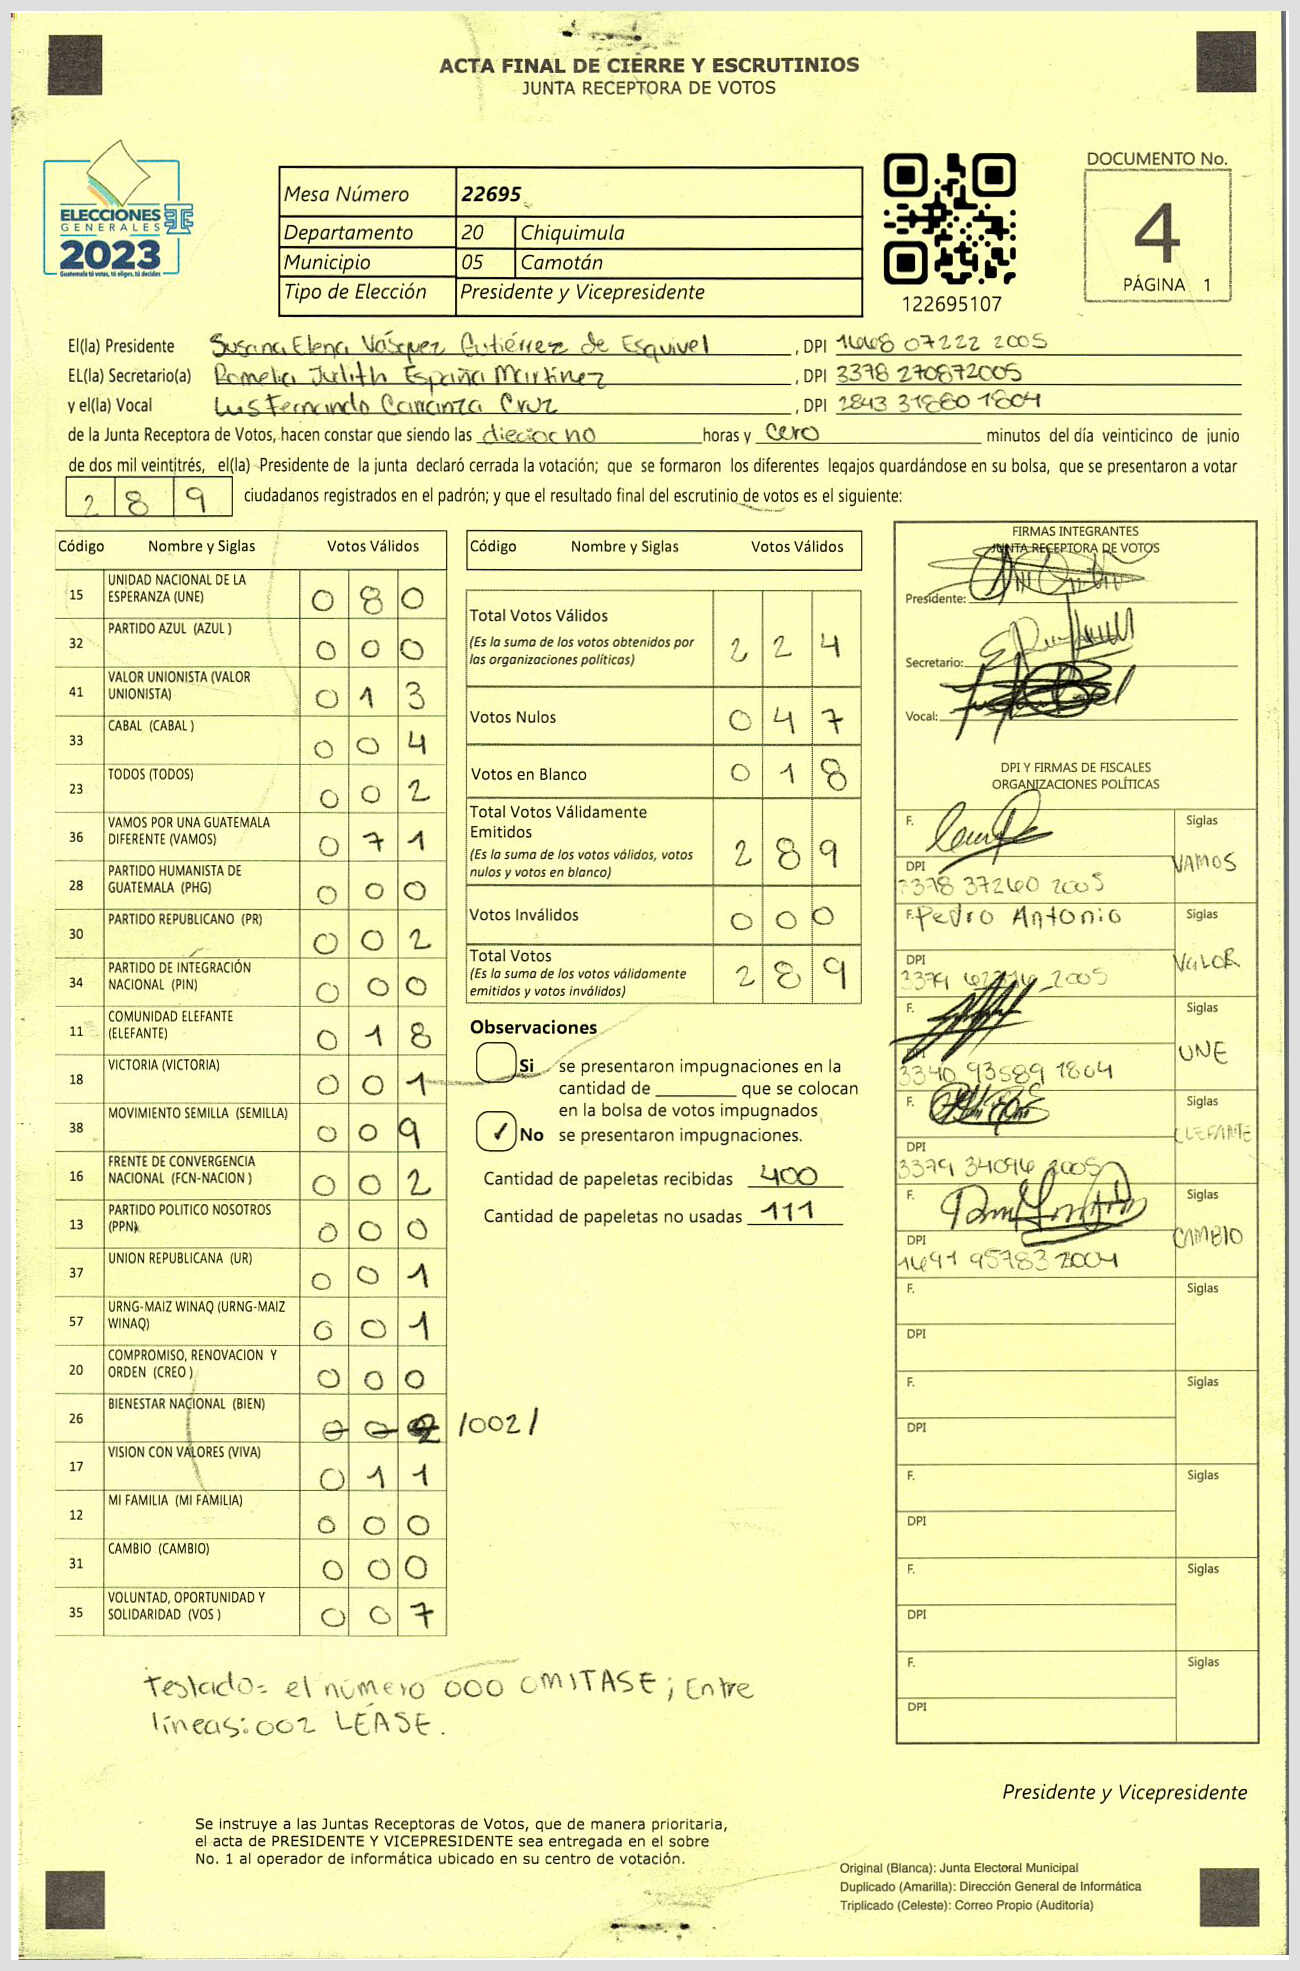 ACTA FINAL DE CIERRE Y ESCRUTINIOS
JUNTA RECEPTORA DE VOTOS
ELECCIONES
GENERALES
2023
Guatemala tú votas, tú eliges, tú decides
Mesa Número 22695
Departamento 20 Chiquimula
Municipio 05 Camotán
Tipo de Elección Presidente y Vicepresidente
122695107
DOCUMENTO No.
4
PÁGINA 1
El(la) Presidente Susana Elena Vásquez Gutiérrez de Esquivel , DPI 1668 07222 2005
EL(la) Secretario(a) Romelia Judith España Martínez , DPI 3378 27087 2005
y el(la) Vocal Luis Fernando Carranza Cruz , DPI 2843 31880 1804
de la Junta Receptora de Votos, hacen constar que siendo las dieciocho horas y cero minutos del día veinticinco de junio
de dos mil veintitrés, el(la) Presidente de la junta declaró cerrada la votación; que se formaron los diferentes legajos quardándose en su bolsa, que se presentaron a votar
289 ciudadanos registrados en el padrón; y que el resultado final del escrutinio de votos es el siguiente:
Código Nombre y Siglas Votos Válidos
15 UNIDAD NACIONAL DE LA ESPERANZA (UNE) 0 8 0
32 PARTIDO AZUL (AZUL ) 0 0 0
41 VALOR UNIONISTA (VALOR UNIONISTA) 0 1 3
33 CABAL (CABAL ) 0 0 4
23 TODOS (TODOS) 0 0 2
36 VAMOS POR UNA GUATEMALA DIFERENTE (VAMOS) 0 7 1
28 PARTIDO HUMANISTA DE GUATEMALA (PHG) 0 0 0
30 PARTIDO REPUBLICANO (PR) 0 0 2
34 PARTIDO DE INTEGRACIÓN NACIONAL (PIN) 0 0 0
11 COMUNIDAD ELEFANTE (ELEFANTE) 0 1 8
18 VICTORIA (VICTORIA) 0 0 1
38 MOVIMIENTO SEMILLA (SEMILLA) 0 0 9
16 FRENTE DE CONVERGENCIA NACIONAL (FCN-NACION ) 0 0 2
13 PARTIDO POLITICO NOSOTROS (PPN) 0 0 0
37 UNION REPUBLICANA (UR) 0 0 1
57 URNG-MAIZ WINAQ (URNG-MAIZ WINAQ) 0 0 1
20 COMPROMISO, RENOVACION Y ORDEN (CREO ) 0 0 0
26 BIENESTAR NACIONAL (BIEN) 0 0 2 /002/
17 VISION CON VALORES (VIVA) 0 1 1
12 MI FAMILIA (MI FAMILIA) 0 0 0
31 CAMBIO (CAMBIO) 0 0 0
35 VOLUNTAD, OPORTUNIDAD Y SOLIDARIDAD (VOS ) 0 0 7
Código Nombre y Siglas Votos Válidos
Total Votos Válidos 2 2 4
(Es la suma de los votos obtenidos por
las organizaciones políticas)
Votos Nulos 0 4 7
Votos en Blanco 0 1 8
Total Votos Válidamente
Emitidos 2 8 9
(Es la suma de los votos válidos, votos
nulos y votos en blanco)
Votos Inválidos 0 0 0
Total Votos 2 8 9
(Es la suma de los votos válidamente
emitidos y votos inválidos)
Observaciones
Si se presentaron impugnaciones en la
cantidad de ________ que se colocan
en la bolsa de votos impugnados
✓ No se presentaron impugnaciones.
Cantidad de papeletas recibidas 400
Cantidad de papeletas no usadas 111
FIRMAS INTEGRANTES
JUNTA RECEPTORA DE VOTOS
Presidente:
Secretario:
Vocal:
DPI Y FIRMAS DE FISCALES
ORGANIZACIONES POLÍTICAS
F. Siglas
VAMOS
DPI
3378 37260 2005
F. Pedro Antonio Siglas
VALOR
DPI
3379 2005
F. Siglas
UNE
DPI
3340 93589 1804
F. Siglas
ELEFANTE
DPI
3379 34096 2005
F. Siglas
CAMBIO
DPI
1691 95783 2004
F. Siglas
DPI
F. Siglas
DPI
F. Siglas
DPI
F. Siglas
DPI
F. Siglas
DPI
Testado= el número 000 OMITASE; Entre
líneas: 002 LÉASE.
Presidente y Vicepresidente
Se instruye a las Juntas Receptoras de Votos, que de manera prioritaria,
el acta de PRESIDENTE Y VICEPRESIDENTE sea entregada en el sobre
No. 1 al operador de informática ubicado en su centro de votación.
Original (Blanca): Junta Electoral Municipal
Duplicado (Amarilla): Dirección General de Informática
Triplicado (Celeste): Correo Propio (Auditoría)